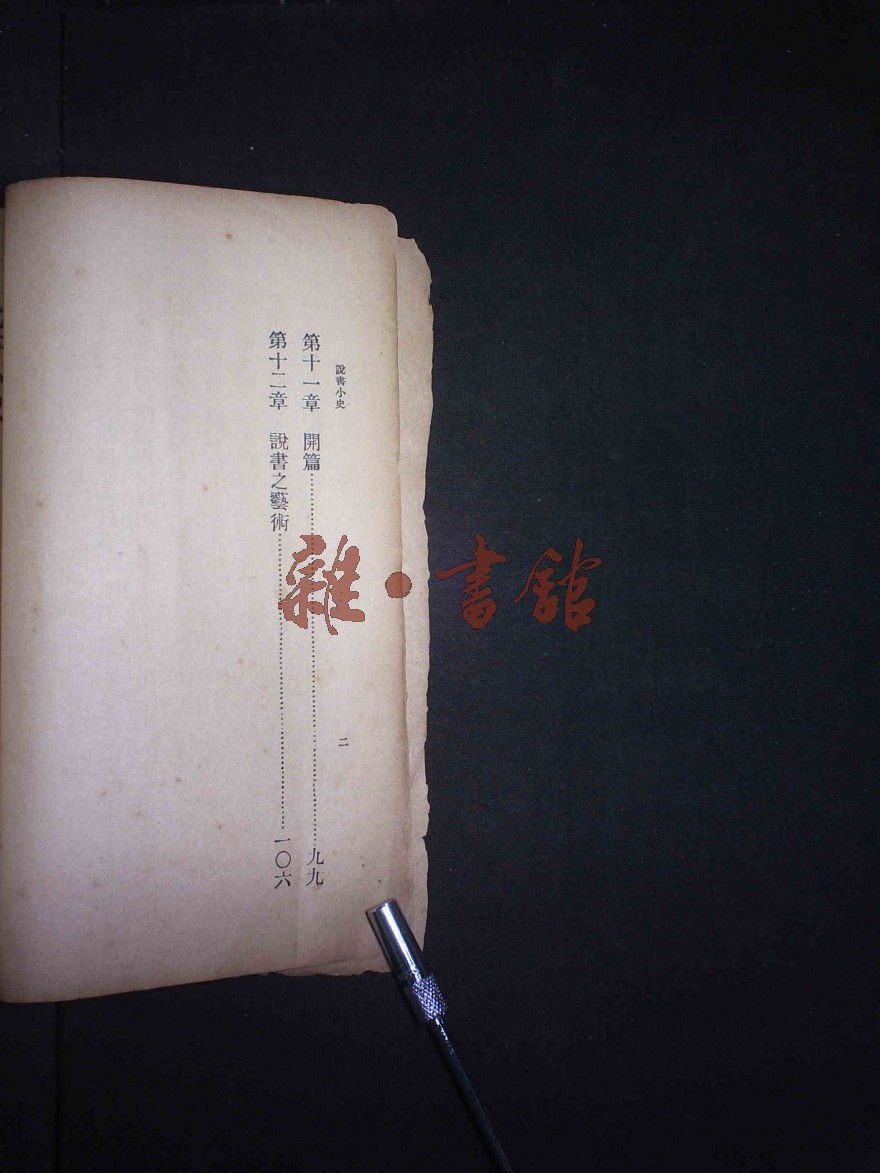 說書小史
二
第十一章　開篇……九九
第十二章　說書之藝術……一〇六
雜·書館